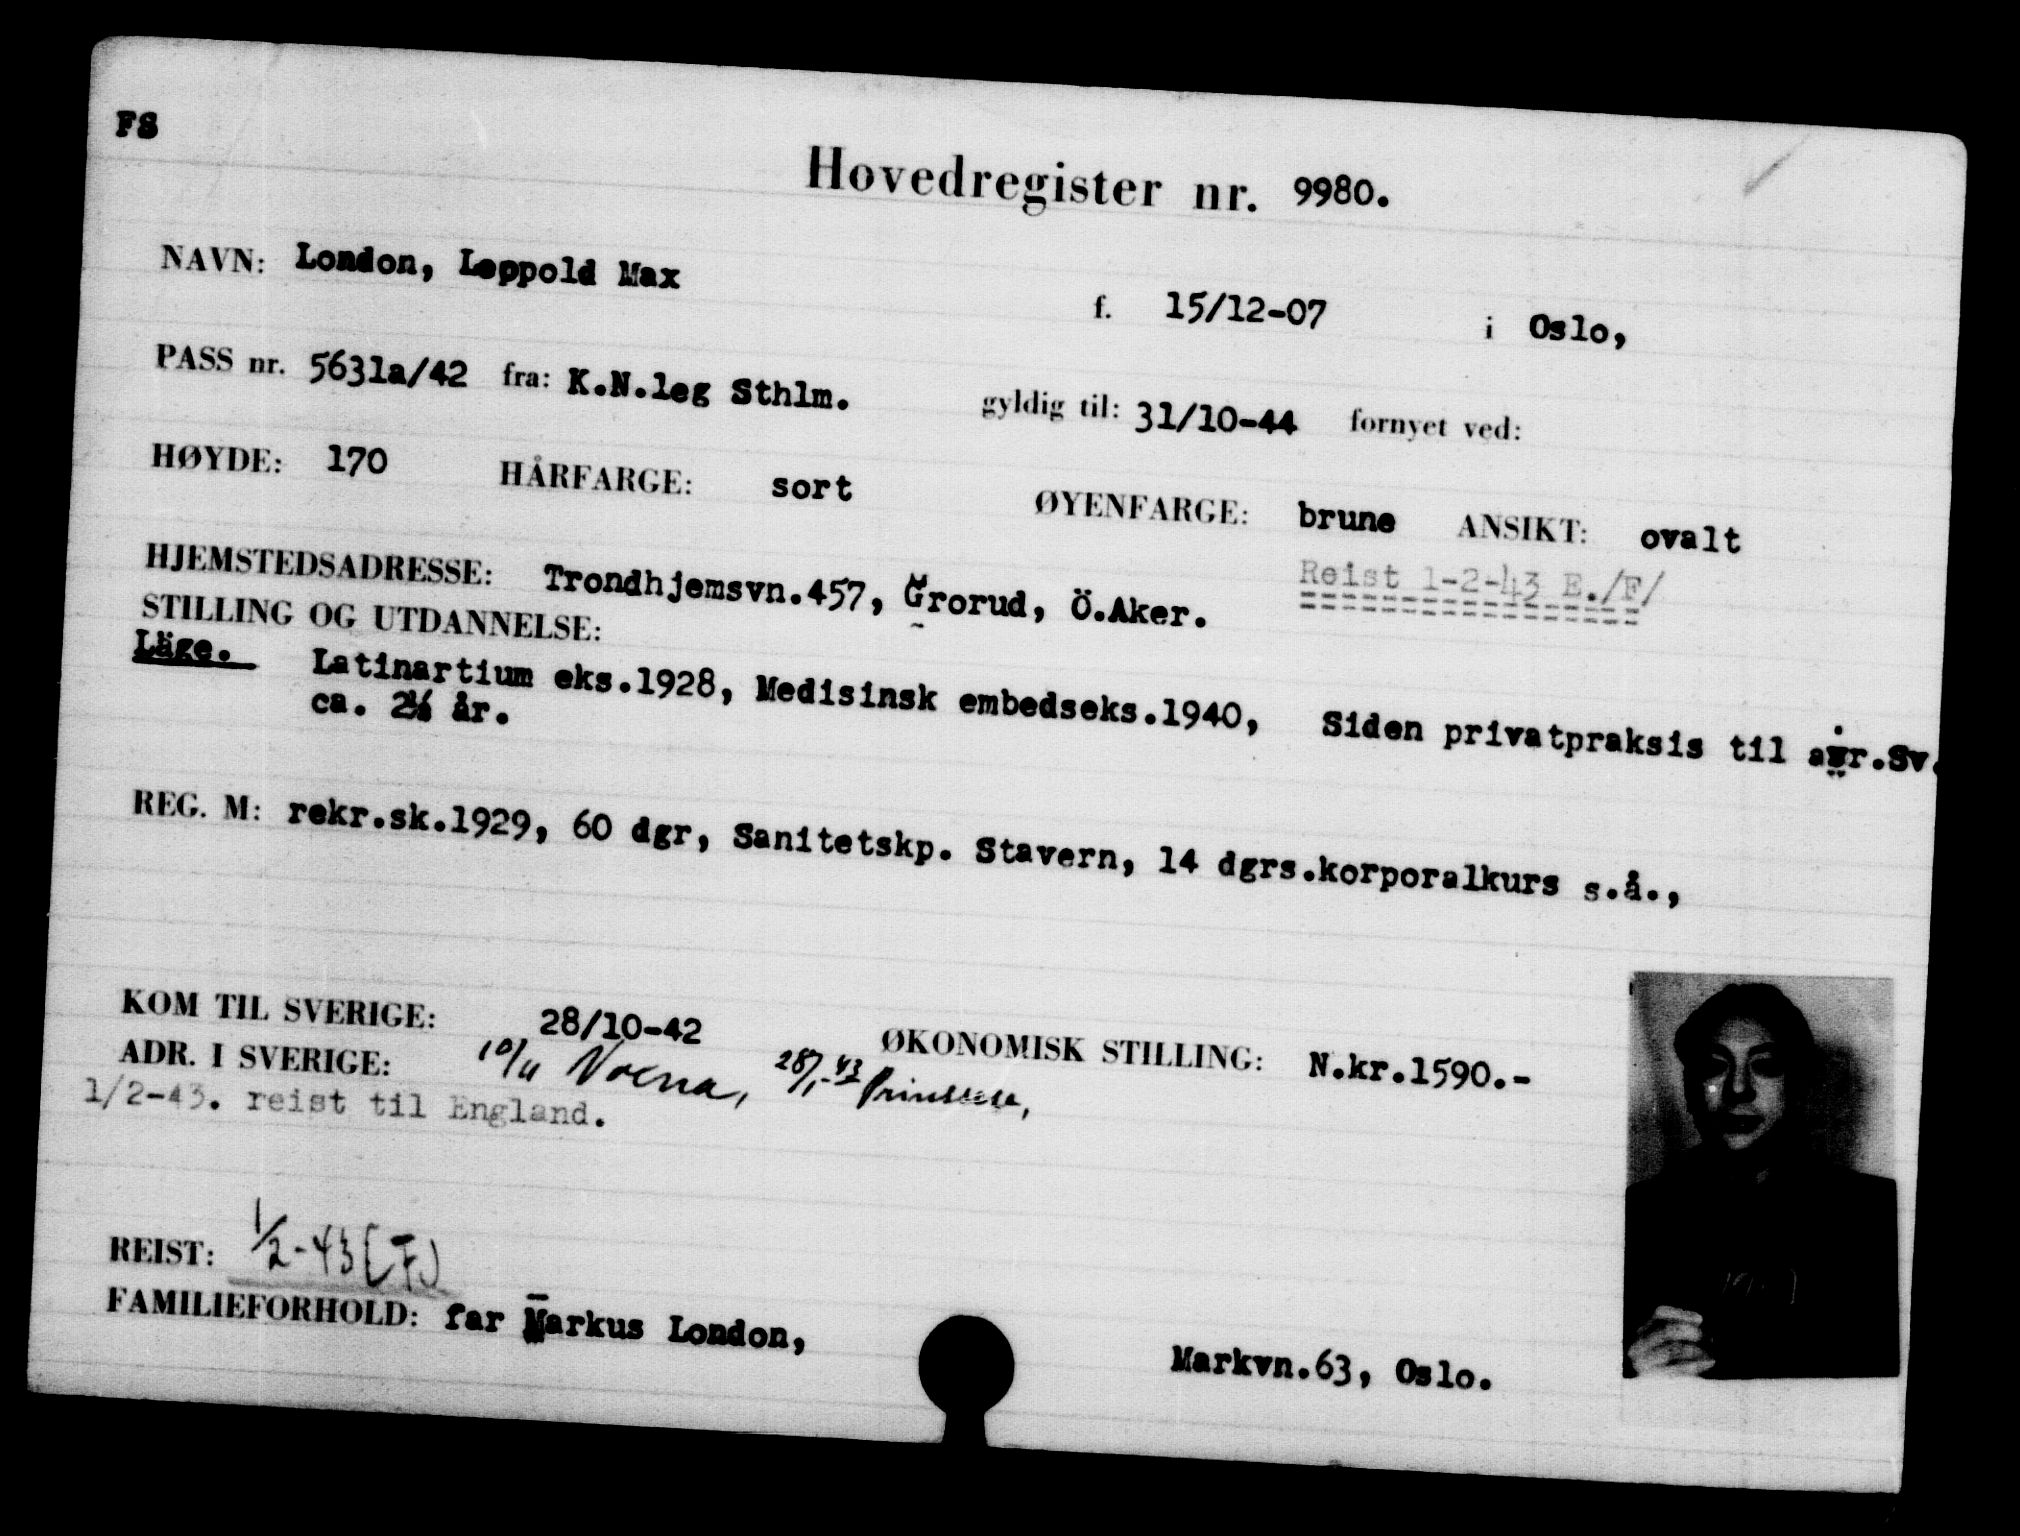 FS
Hovedregister nr. 9980.
NAVN: London, Leopold Max f. 15/12-07 i Oslo,
PASS nr. 5631a/42 fra: K.N.leg Sthlm. gyldig til: 31/10-44 fornyet ved:
HØYDE: 170 HÅRFARGE: sort ØYENFARGE: brune ANSIKT: ovalt
HJEMSTEDSADRESSE: Trondhjemsvn.457, Grorud, Ö.Aker. Reist 1-2-43 E./F/
STILLING OG UTDANNELSE:
Läge. Latinartium eks.1928, Medisinsk embedseks.1940, Siden privatpraksis til avr.Sv.
ca. 2½ år.
REG. M: rekr.sk.1929, 60 dgr, Sanitetskp. Stavern, 14 dgrs.korporalkurs s.å.,
KOM TIL SVERIGE: 28/10-42 ØKONOMISK STILLING: N.kr.1590.-
ADR. I SVERIGE: 10/11 28/1-43
1/2-43. reist til England.
REIST: 1/2-43 (F)
FAMILIEFORHOLD: far Markus London, Markvn.63, Oslo.